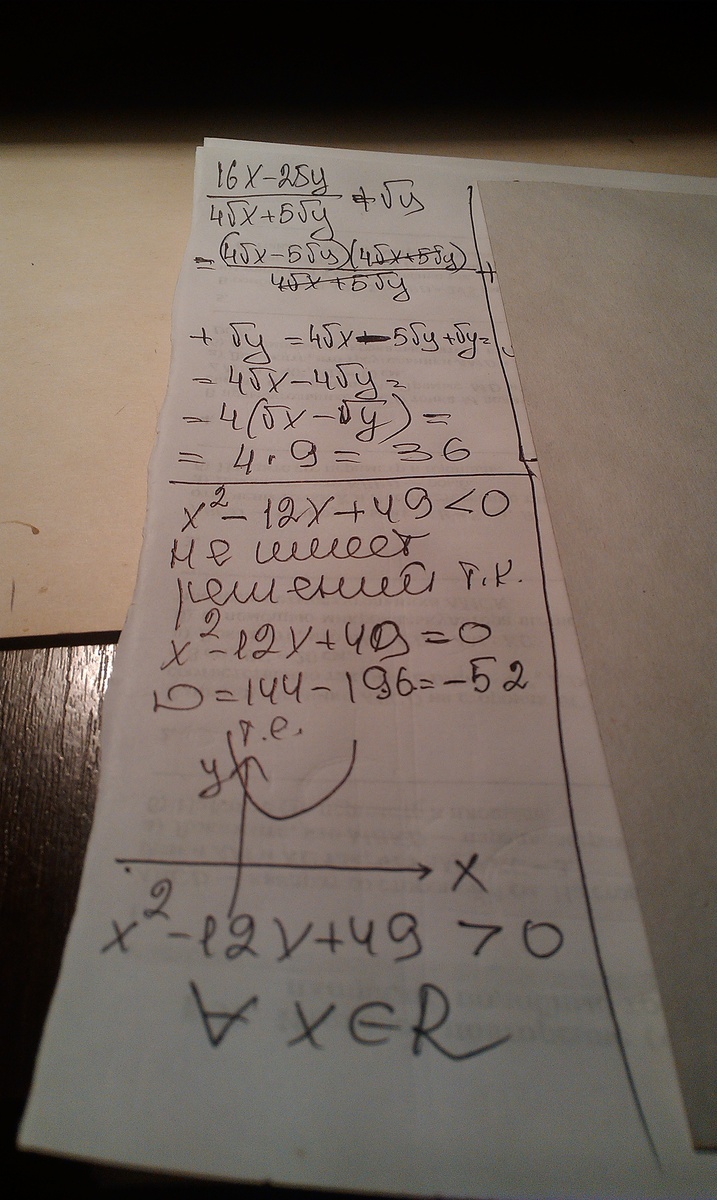 16x-25y
4√x+5√y + √y
= (4√x-5√y)(4√x+5√y) +
4√x+5√y
+ √y = 4√x-5√y+√y=
= 4√x-4√y=
= 4(√x-√y) =
= 4·9 = 36
x²-12x+49<0
не имеет
решений т.к.
x²-12x+49=0
D=144-196=-52
т.е.
y
x
x²-12x+49 >0
∀ x∈R